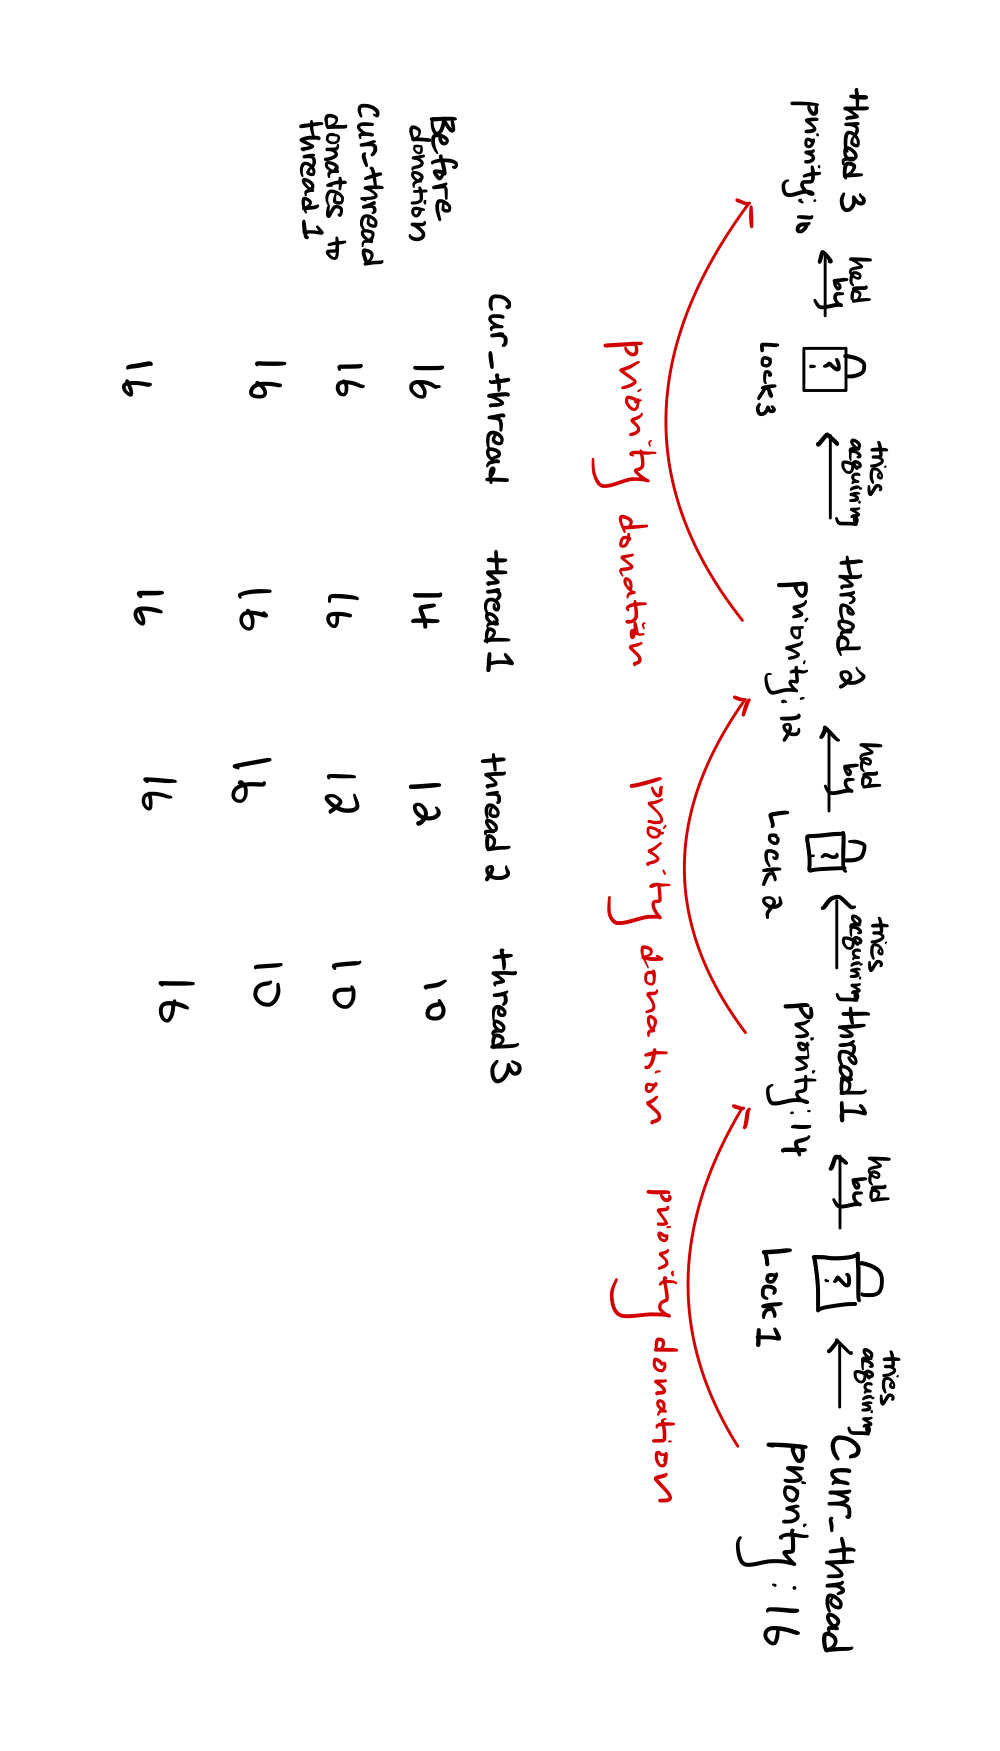 thread 3
priority: 10
held
by
?
Lock3
tries
acquiring
thread 2
priority: 12
held
by
?
Lock 2
tries
acquiring
thread 1
priority: 14
held
by
?
Lock 1
tries
acquiring
Curr_thread
priority: 16
priority donation
priority donation
priority donation
Cur_thread thread 1 thread 2 thread 3
Before
donation
16 14 12 10
Cur_thread
donates to
thread 1
16 16 12 10
16 16 16 10
16 16 16 16